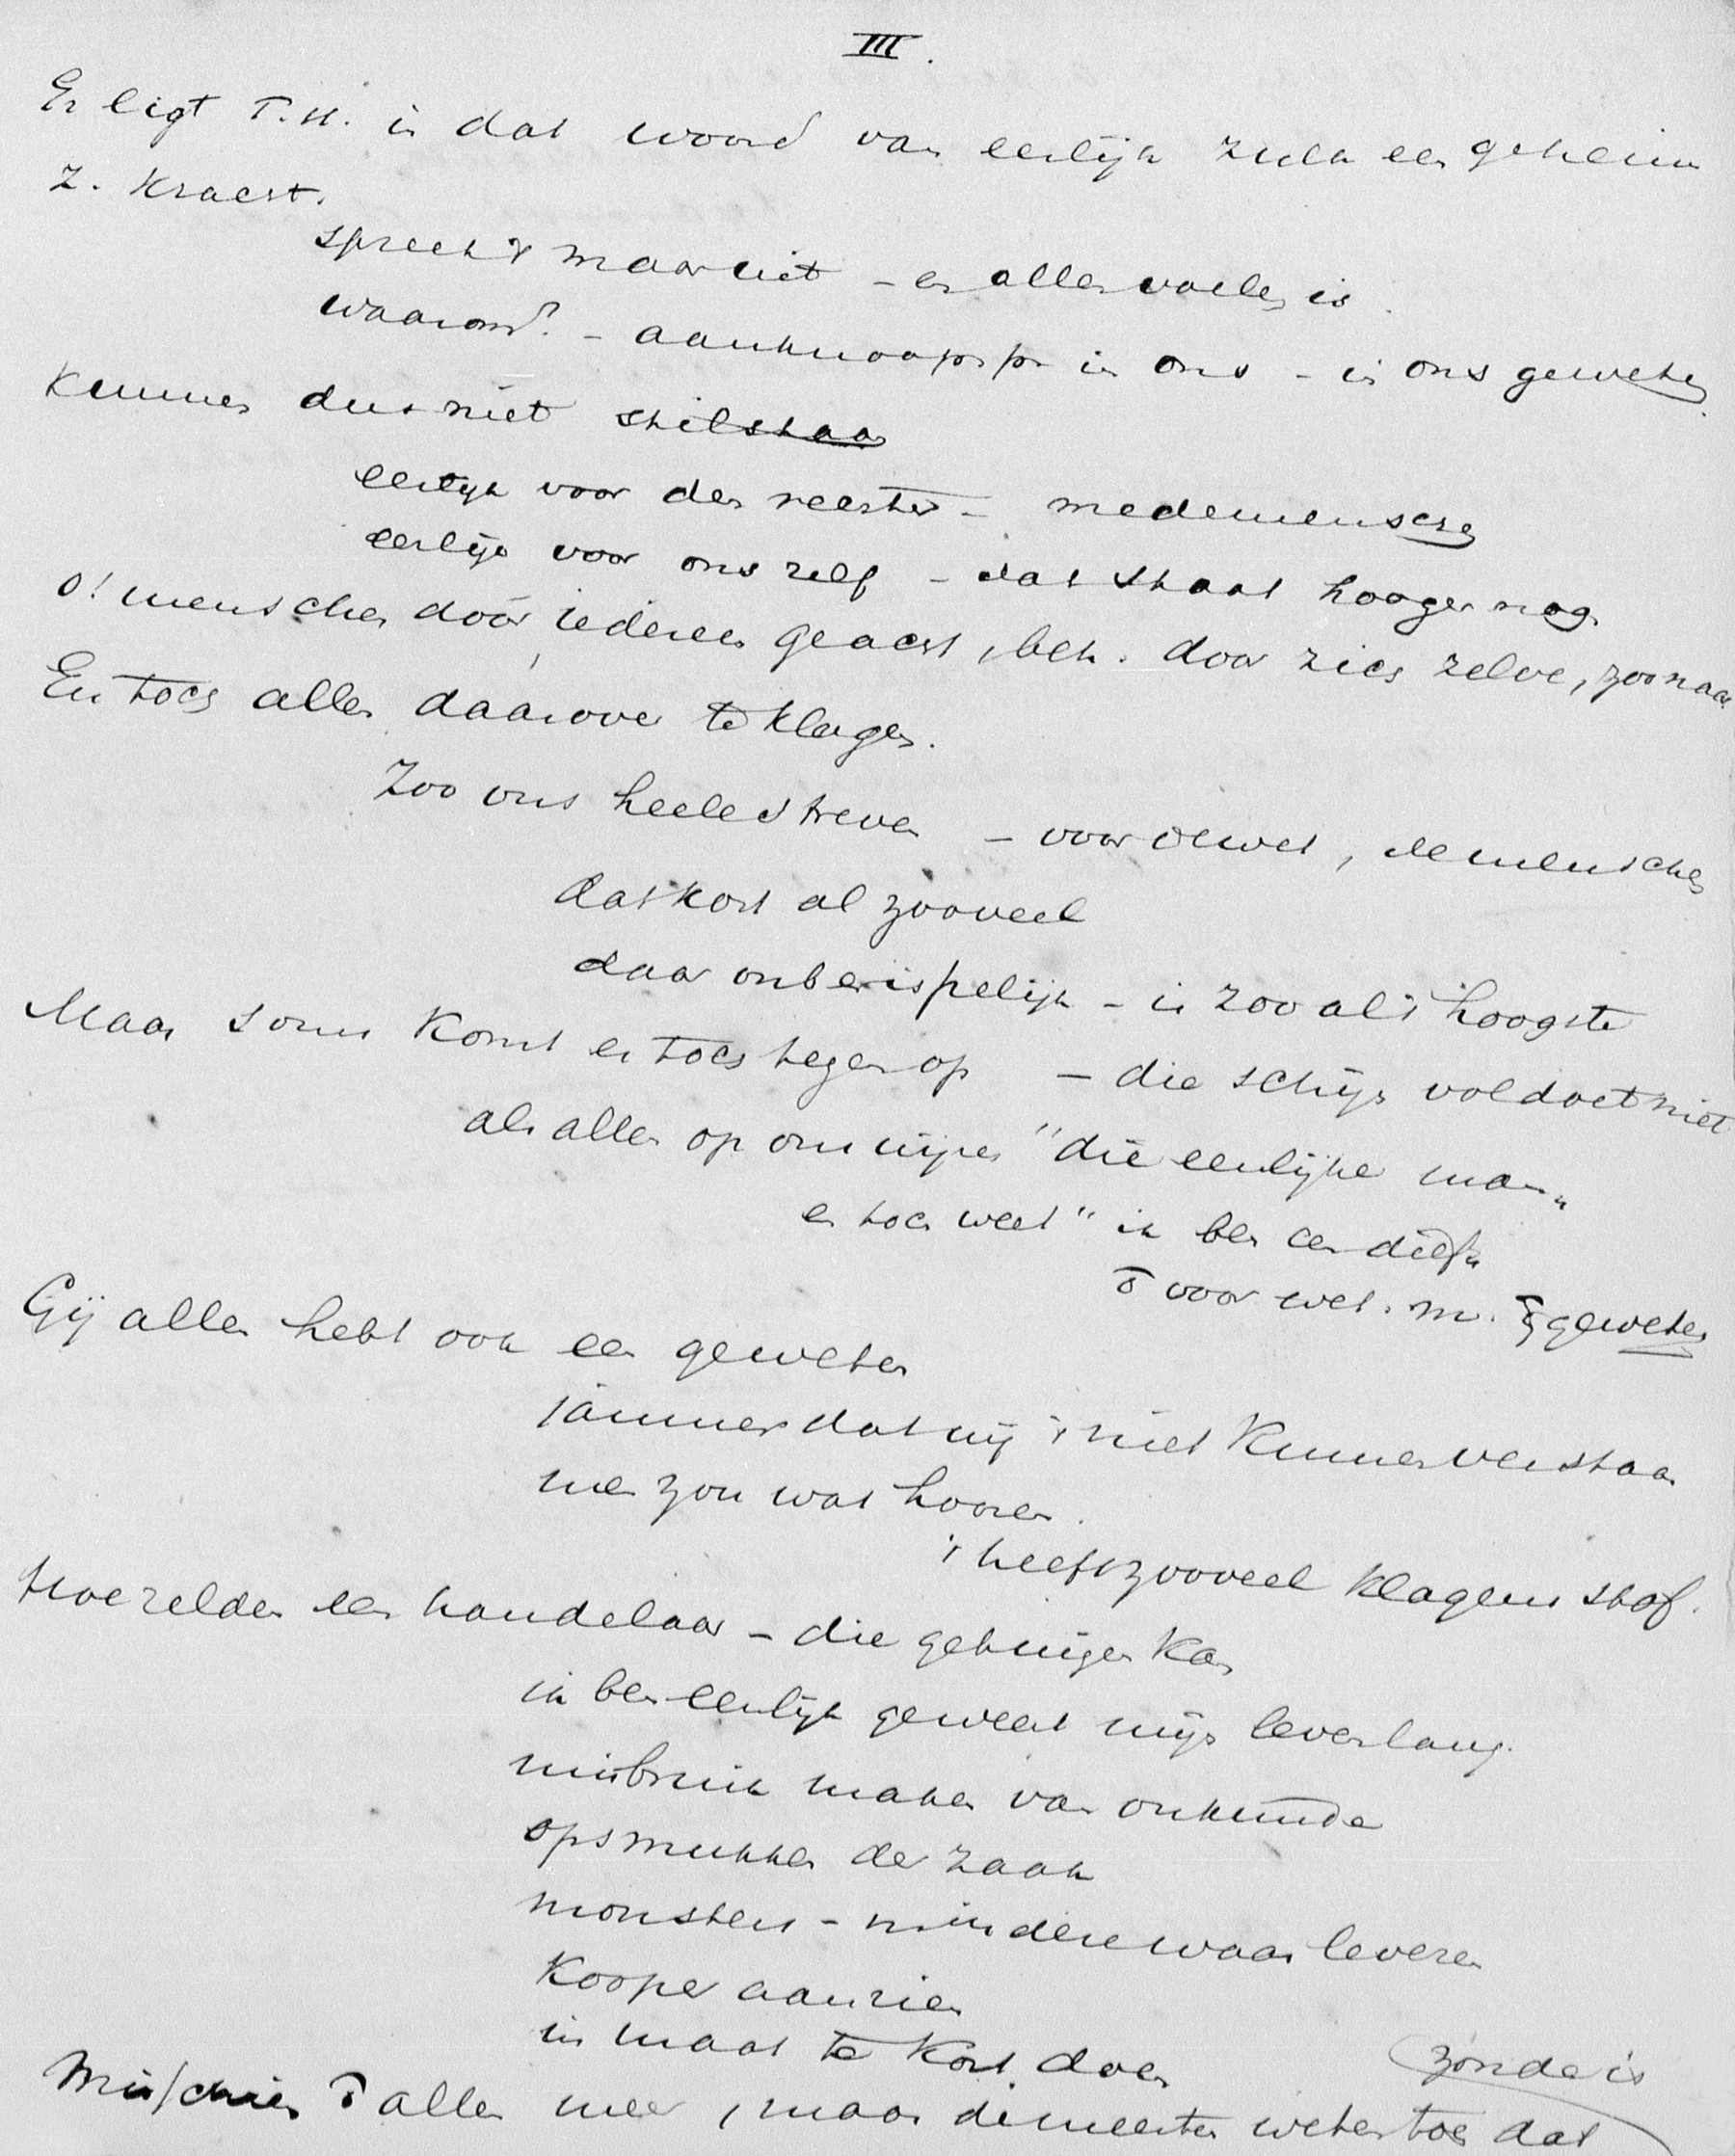 III.
Er ligt T.H. in dat woord van eerlijk zulk een geheim
z. kracht.
spreek 't maar uit - en allen voelen is.
waarom? - aanknoopsp. in ons - in ons geweten.
Kunnen dus niet stilstaan
eerlijk voor den rechter - medemensch
eerlijk voor ons zelf - dat staat hooger nog
o! menschen door iedereen geacht, beh. door zich zelve, zoo naar
En toch allen daarover te klagen.
Zoo ons heele streven - voor de wet, de menschen
dat kost al zooveel
daar onberispelijk - is zoo als 't hoogste
Maar soms komt er toch tegen op - die schijn voldoet niet
als allen op ons wijzen "die eerlijke man"
en toch weet "ik ben een dief"
voor wet. m. geweten
Gij allen hebt ook een geweten
jammer dat wij 't niet kunnen verstaan
men zou wat hooren.
't heeft zooveel klagens stof.
Hoe zelden een handelaar - die getuigen kan
ik ben eerlijk geweest mijn leven lang.
misbruik maken van onkunde
opsmukken der zaak
monsters - mindere waar leveren
Kooper aanzien
in maat te kort doen
zonde is
Misschien allen meer, maar de meesten weten toch dat